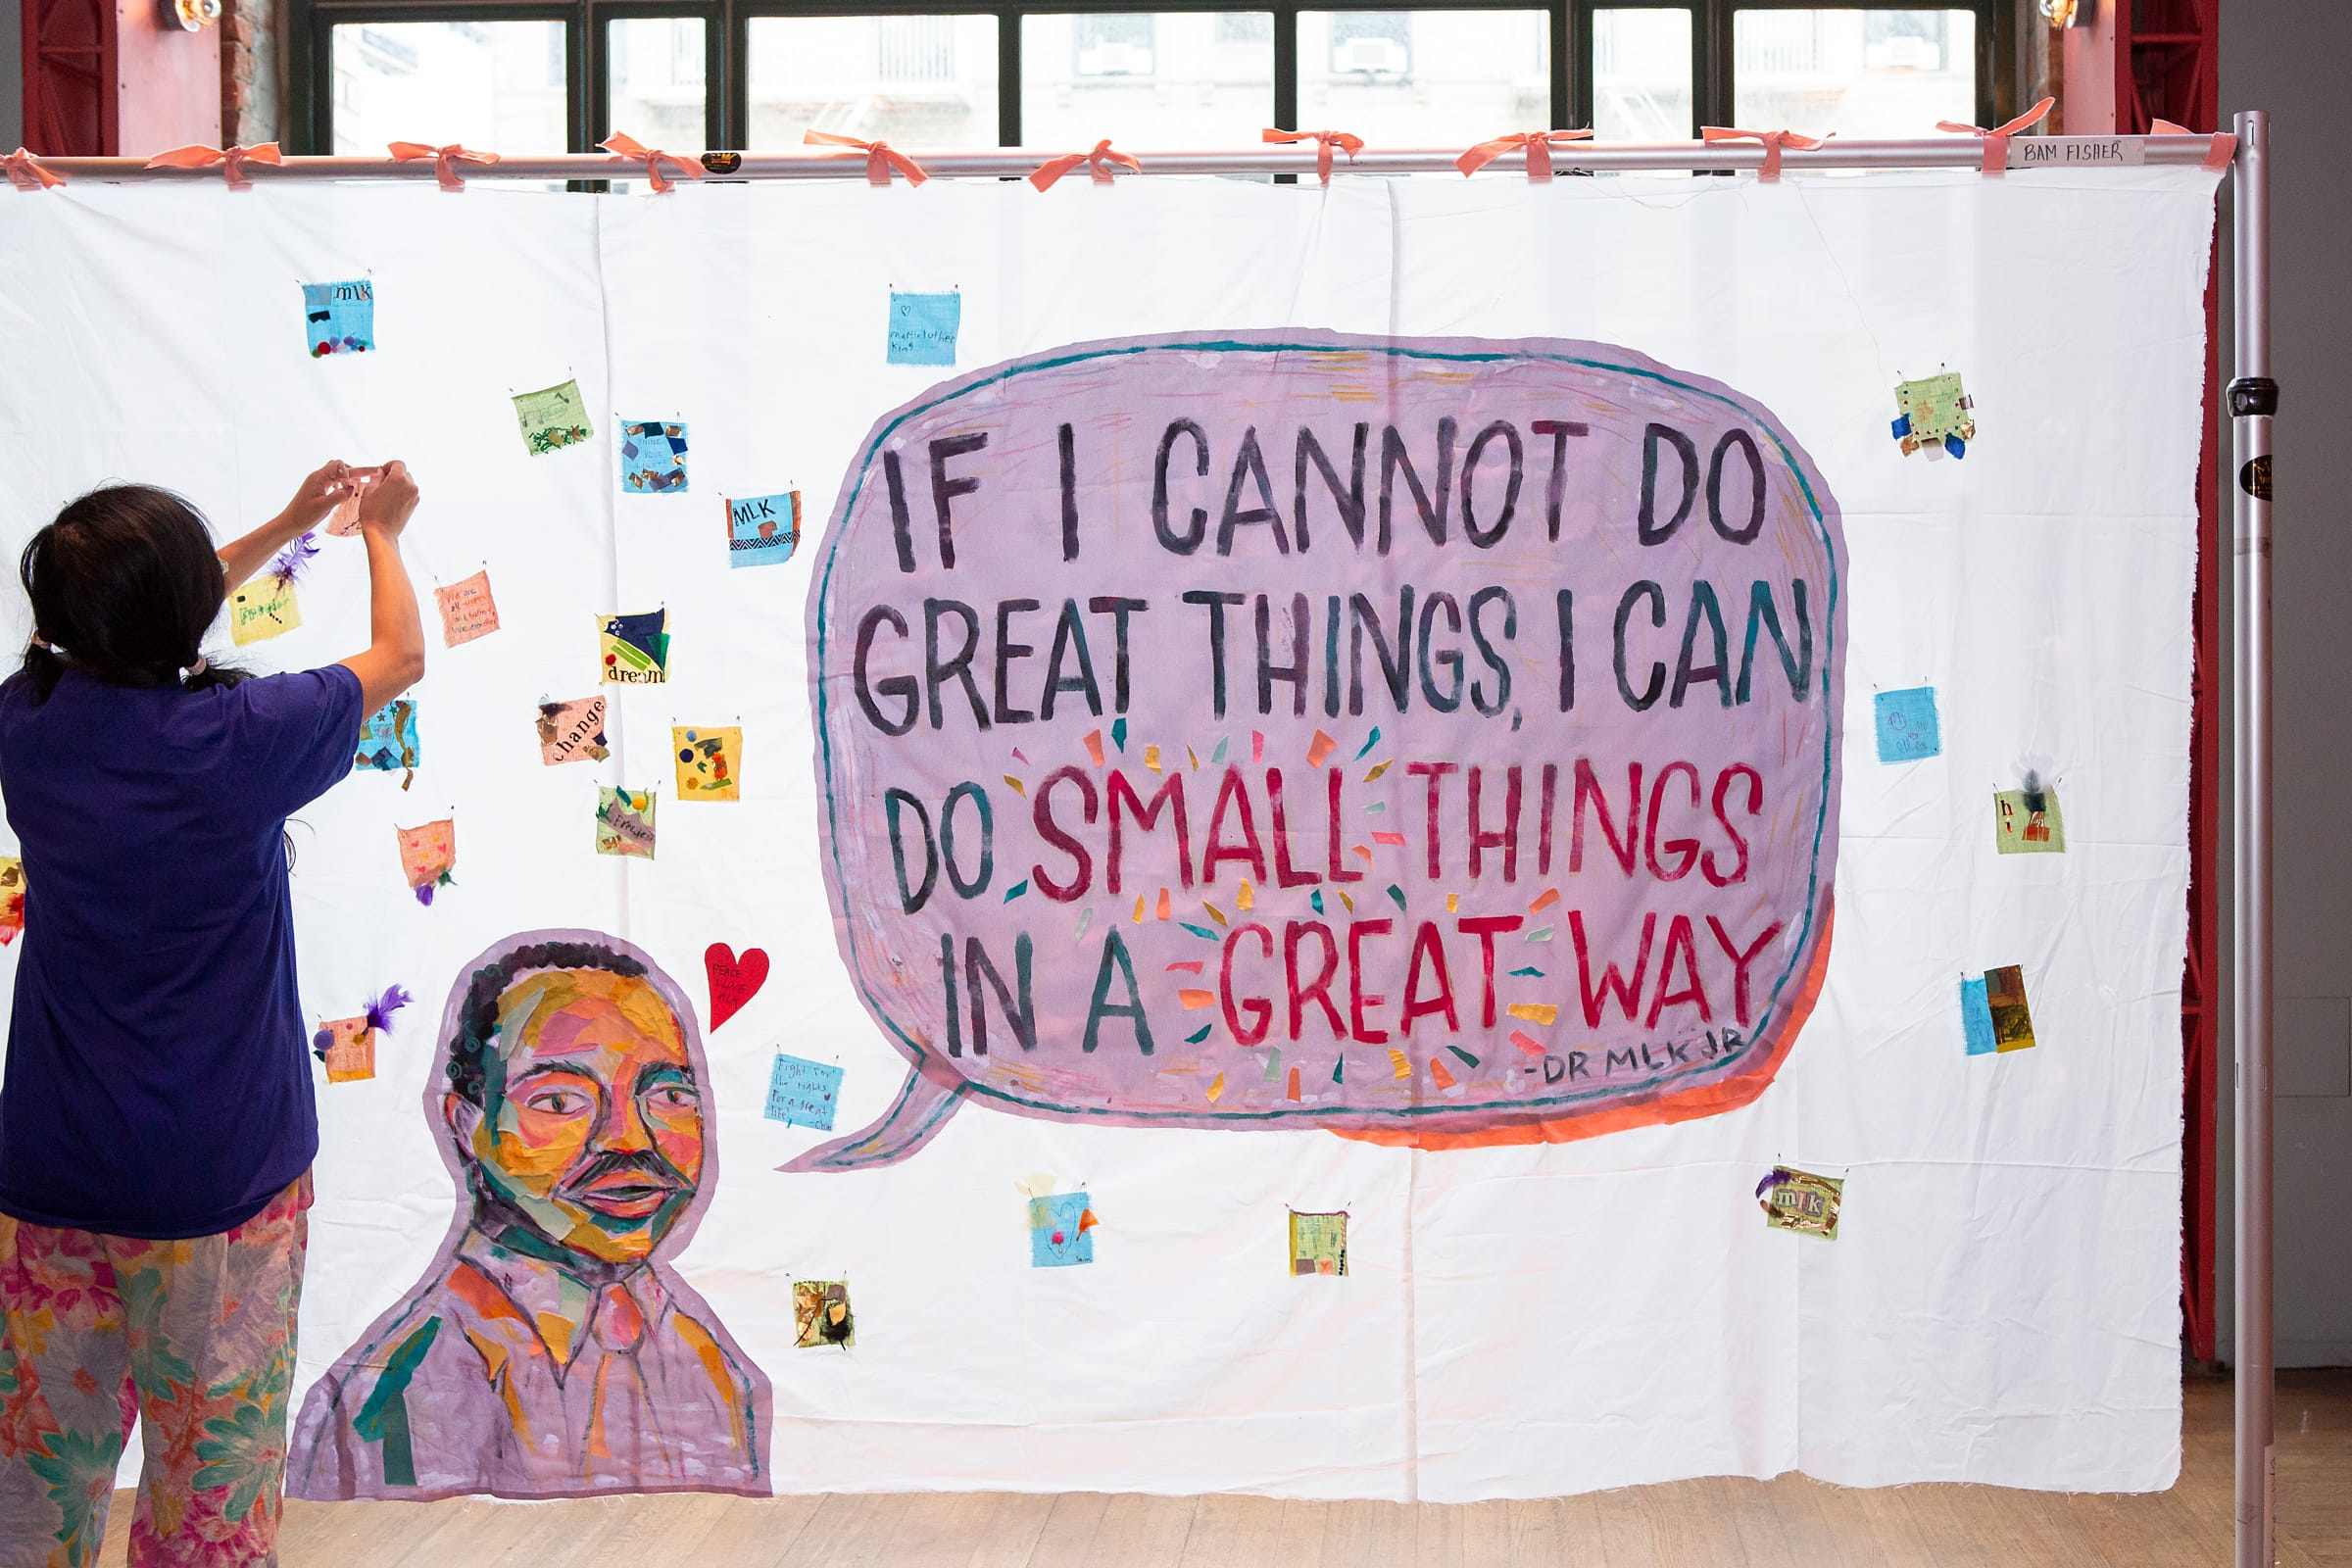 BAM FISHER
mlk
martin luther
King
SHINE
YOUR
LIGHT
MLK
IF I CANNOT DO
GREAT THINGS, I CAN
DO SMALL THINGS
IN A GREAT WAY
-DR MLK JR
Freedom
We are
all
dream
change
Freedom
hi
PEACE
LOVE
MLK
Fight for
the rights
For a great
life!
mlk